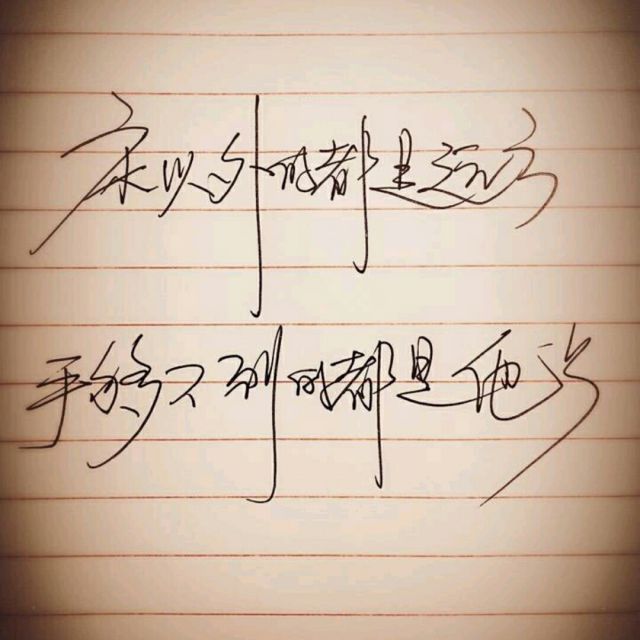 床以外的都是远方
手够不到的都是他乡